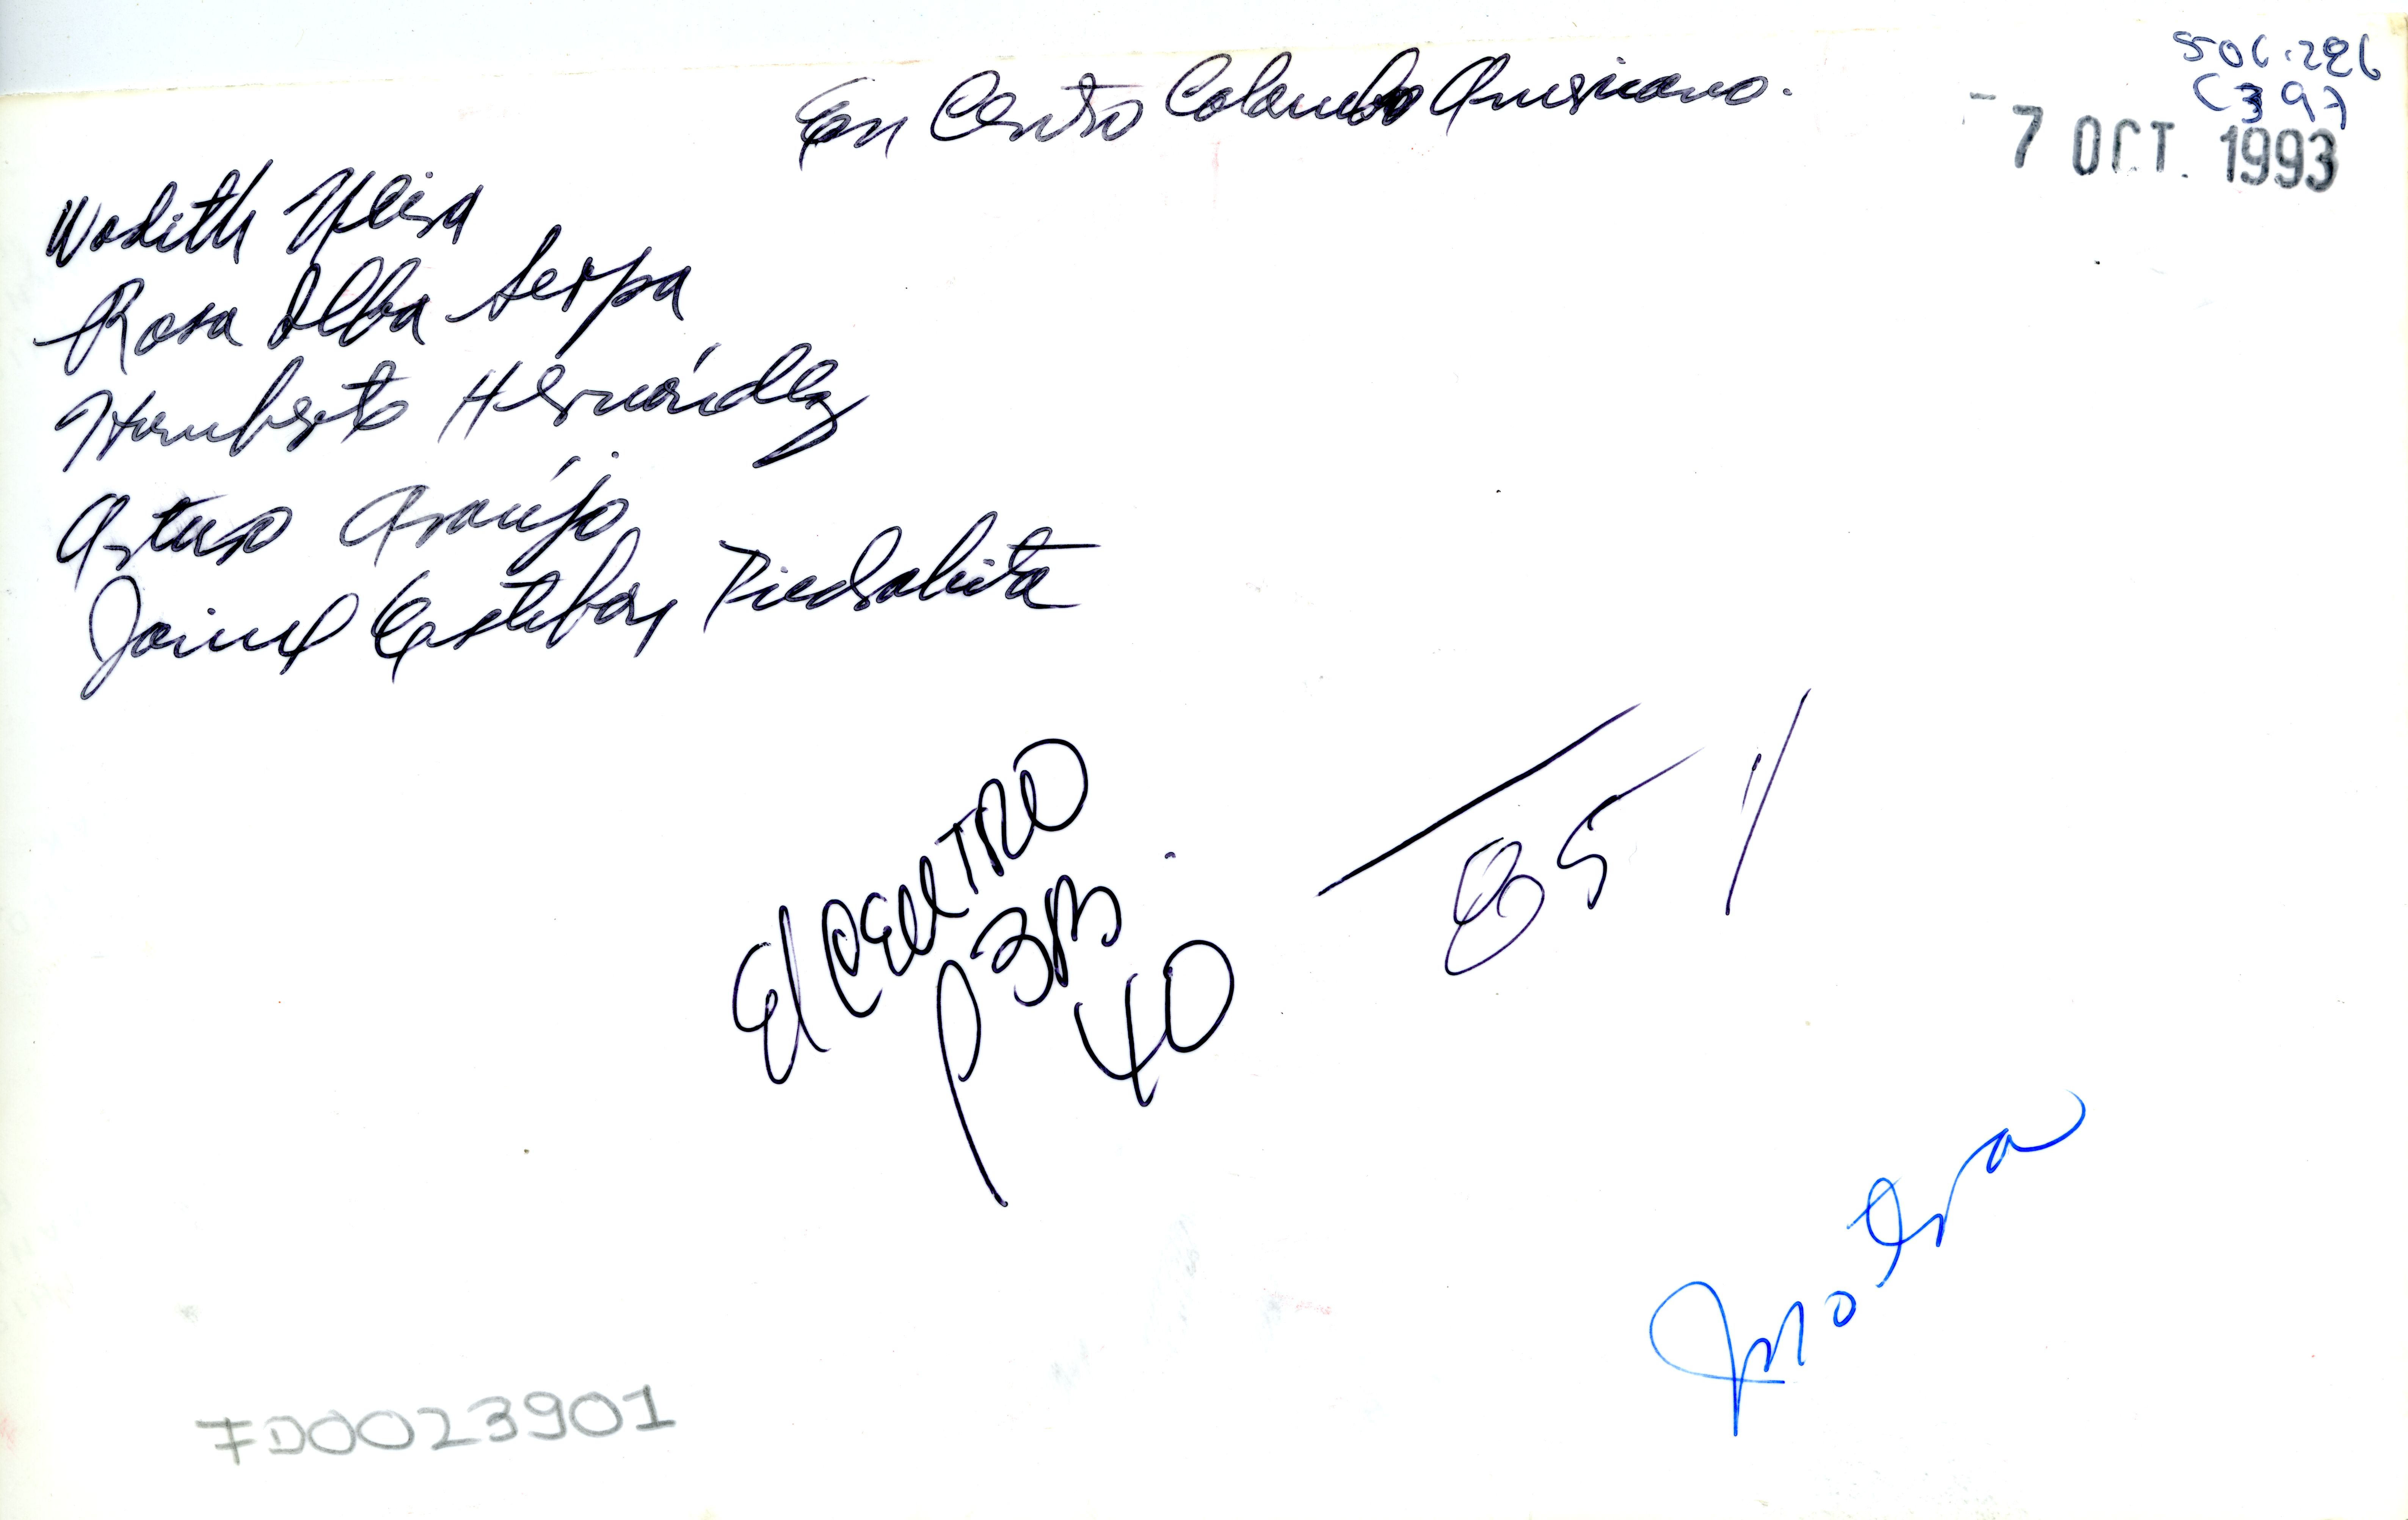 En Centro Colombo Americano.
SOC.286
(397)
- 7 OCT. 1993
Wadith
Rosa Alba Serpa
Humberto Hernández
Arturo Araújo
Jaime Esteban Piedrahita
El CENTRO
P 3B
40
85 %
FD0023901